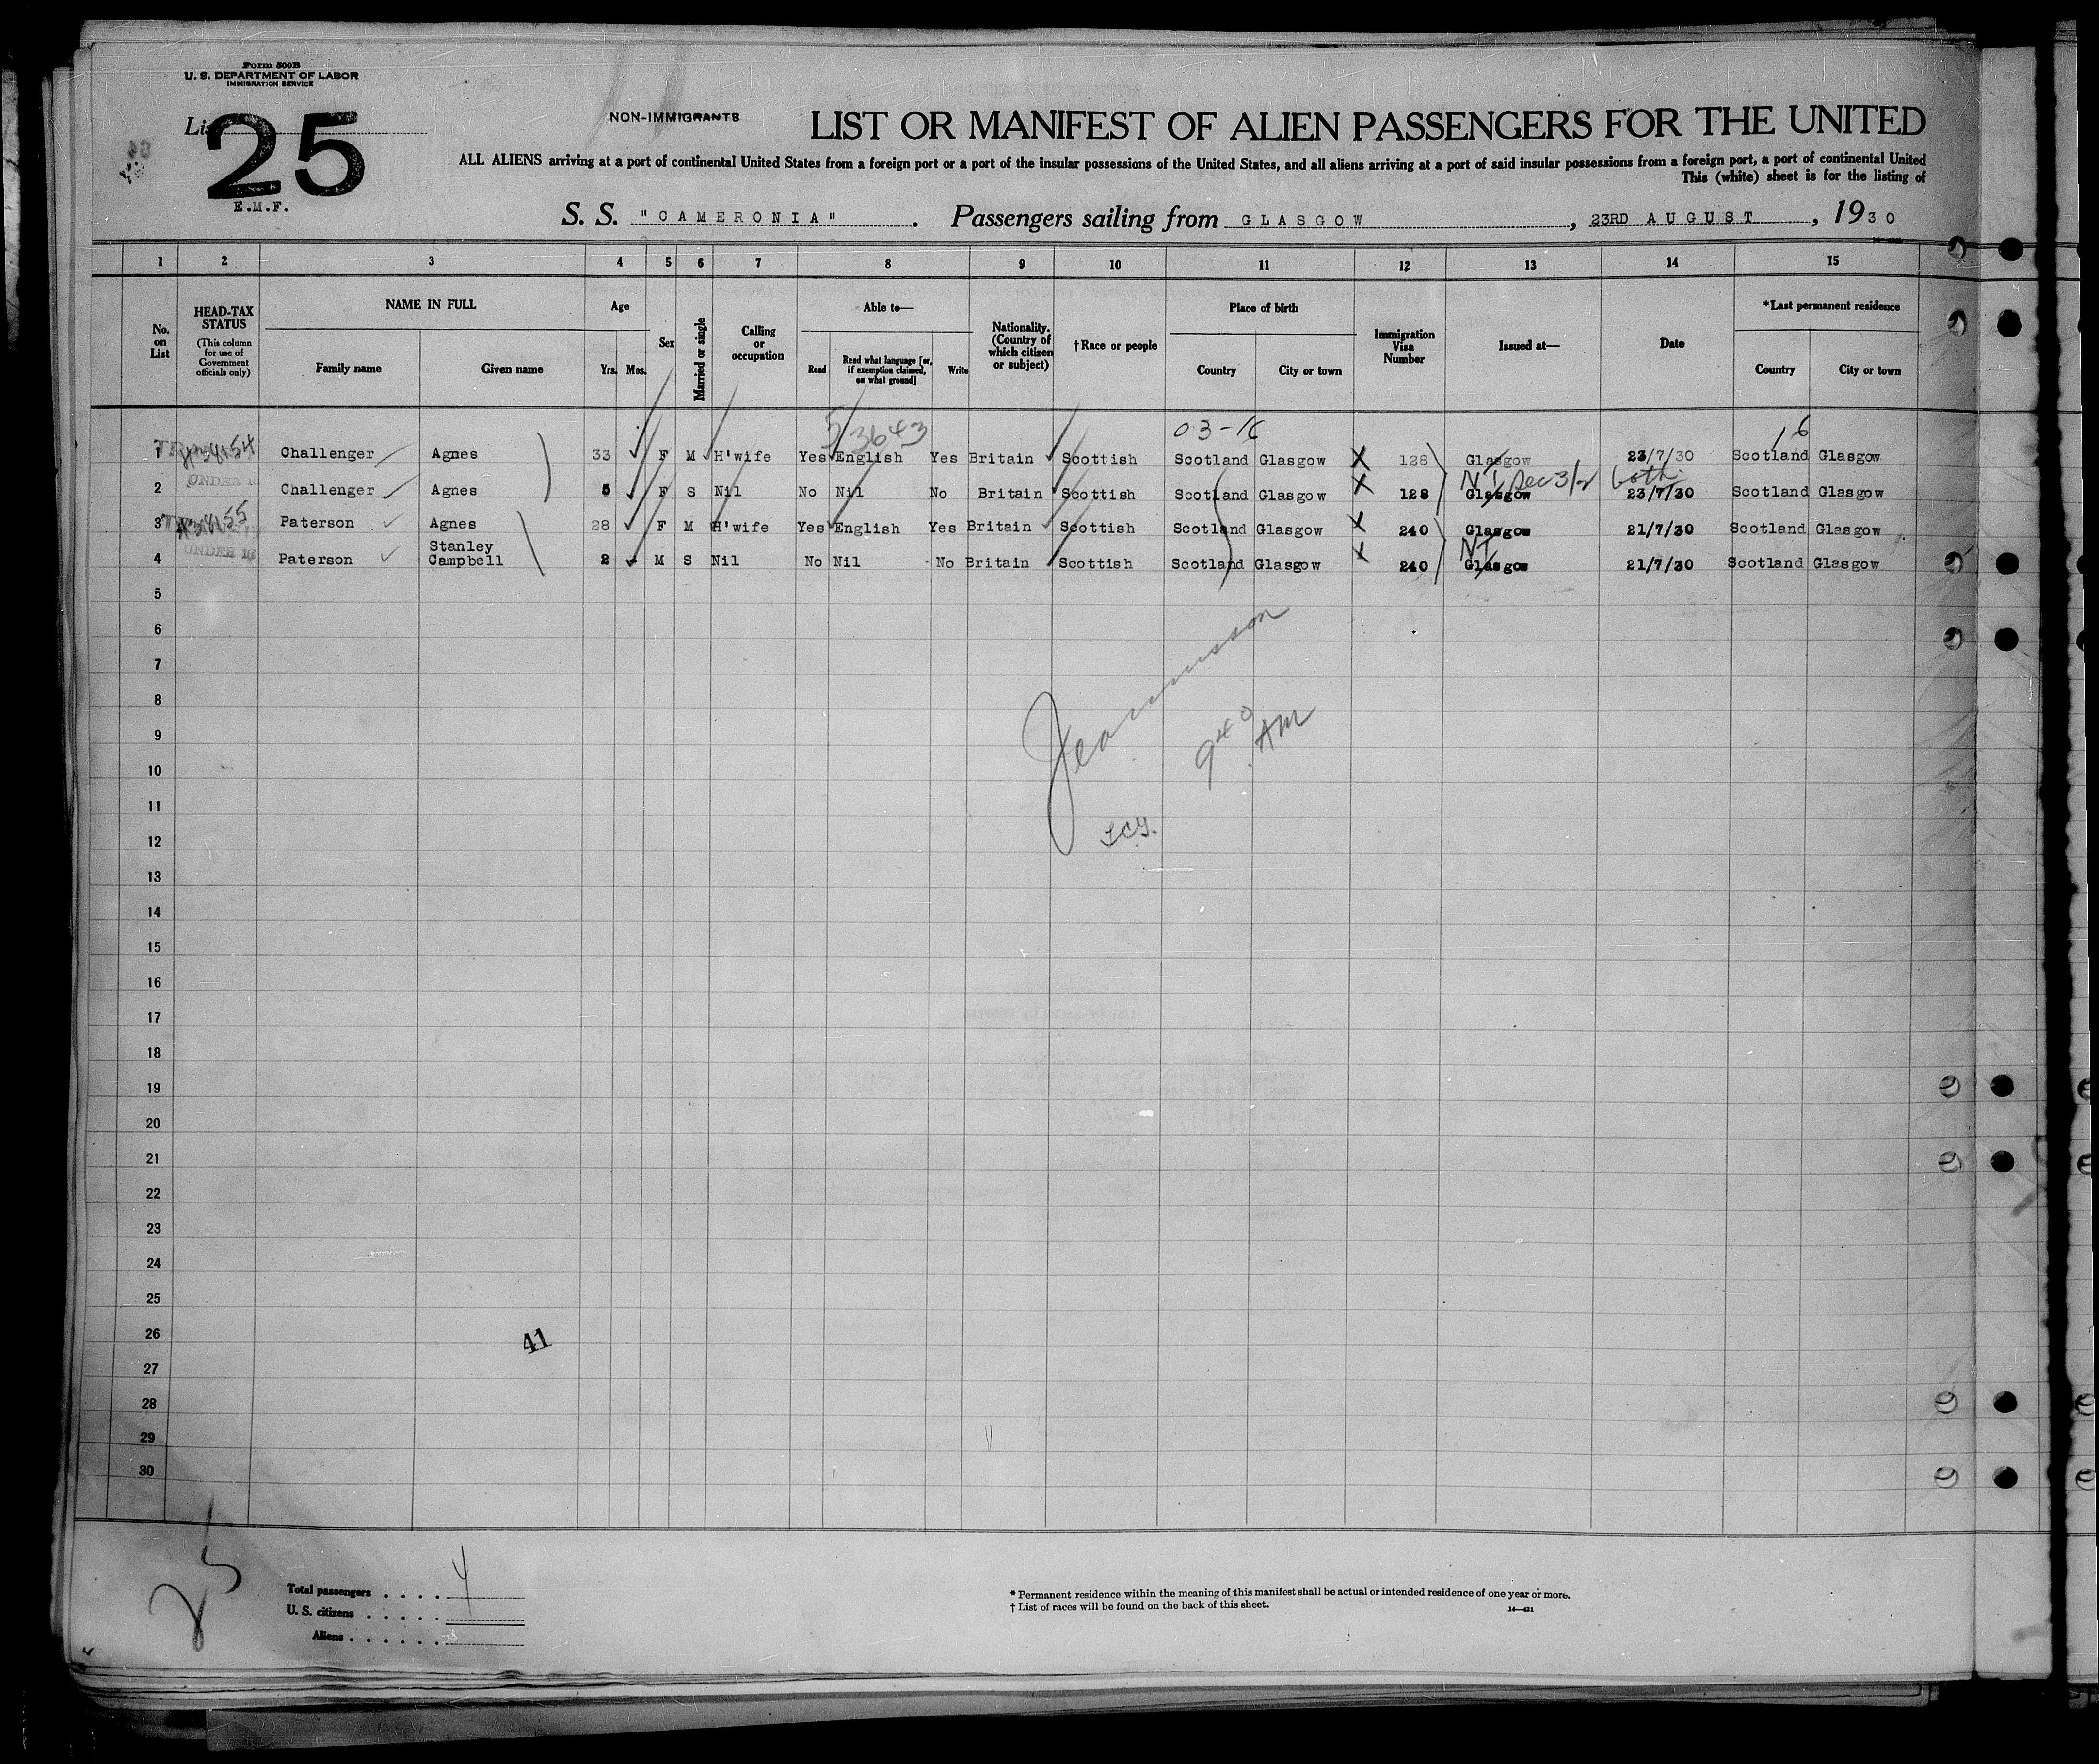 Form 500B
U. S. DEPARTMENT OF LABOR
IMMIGRATION SERVICE
25
E.M.F.
NON-IMMIGRANTS
LIST OR MANIFEST OF ALIEN PASSENGERS FOR THE UNITED
ALL ALIENS arriving at a port of continental United States from a foreign port or a port of the insular possessions of the United States, and all aliens arriving at a port of said insular possessions from a foreign port, a port of continental United
This (white) sheet is for the listing of
S. S. "CAMERONIA". Passengers sailing from GLASGOW, 23RD AUGUST, 1930
1 2 3 4 5 6 7 8 9 10 11 12 13 14 15
No. on List
HEAD-TAX STATUS
(This column for use of Government officials only)
NAME IN FULL
Family name Given name
Age
Yrs. Mos.
Sex
Married or single
Calling or occupation
Able to—
Read
Read what language [or, if exemption claimed, on what ground]
Write
Nationality. (Country of which citizen or subject)
†Race or people
Place of birth
Country City or town
Immigration Visa Number
Issued at—
Date
*Last permanent residence
Country City or town
53643 03-16 16
1 Challenger Agnes 33 F M H'wife Yes English Yes Britain Scottish Scotland Glasgow X 128 Glasgow 23/7/30 Scotland Glasgow
UNDER 16 NT Sec 3/2 both
2 Challenger Agnes 5 F S Nil No Nil No Britain Scottish Scotland Glasgow X 128 Glasgow 23/7/30 Scotland Glasgow
3 Paterson Agnes 28 F M H'wife Yes English Yes Britain Scottish Scotland Glasgow X 240 Glasgow 21/7/30 Scotland Glasgow
UNDER 16 NT
4 Paterson Stanley Campbell 2 M S Nil No Nil No Britain Scottish Scotland Glasgow X 240 Glasgow 21/7/30 Scotland Glasgow
5
6
7
8
9
9 40 AM
10
11
12
13
14
15
16
17
18
19
20
21
22
23
24
25
26
41
27
28
29
30
25
Total passengers . . . . 4
U. S. citizens . . . . .
Aliens . . . . . .
* Permanent residence within the meaning of this manifest shall be actual or intended residence of one year or more.
† List of races will be found on the back of this sheet.